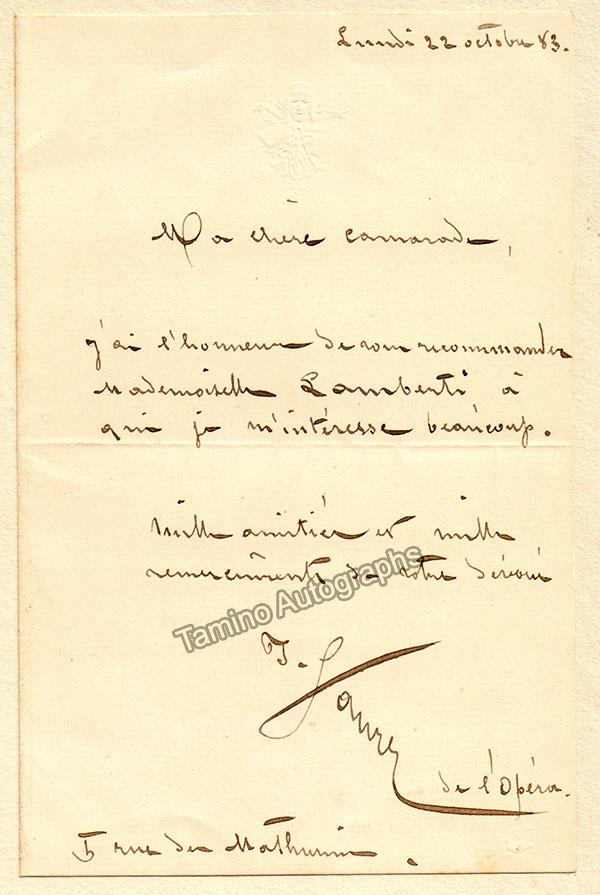 Lundi 22 octobre 83.
Ma chère camarade,
j'ai l'honneur de vous recommander
Mademoiselle Lamberti à
qui je m'intéresse beaucoup.
Mille amitiés et mille
remerciements de votre dévoué
Tamino Autographs
J. Faure
de l'Opéra.
5 rue des Mathurins.